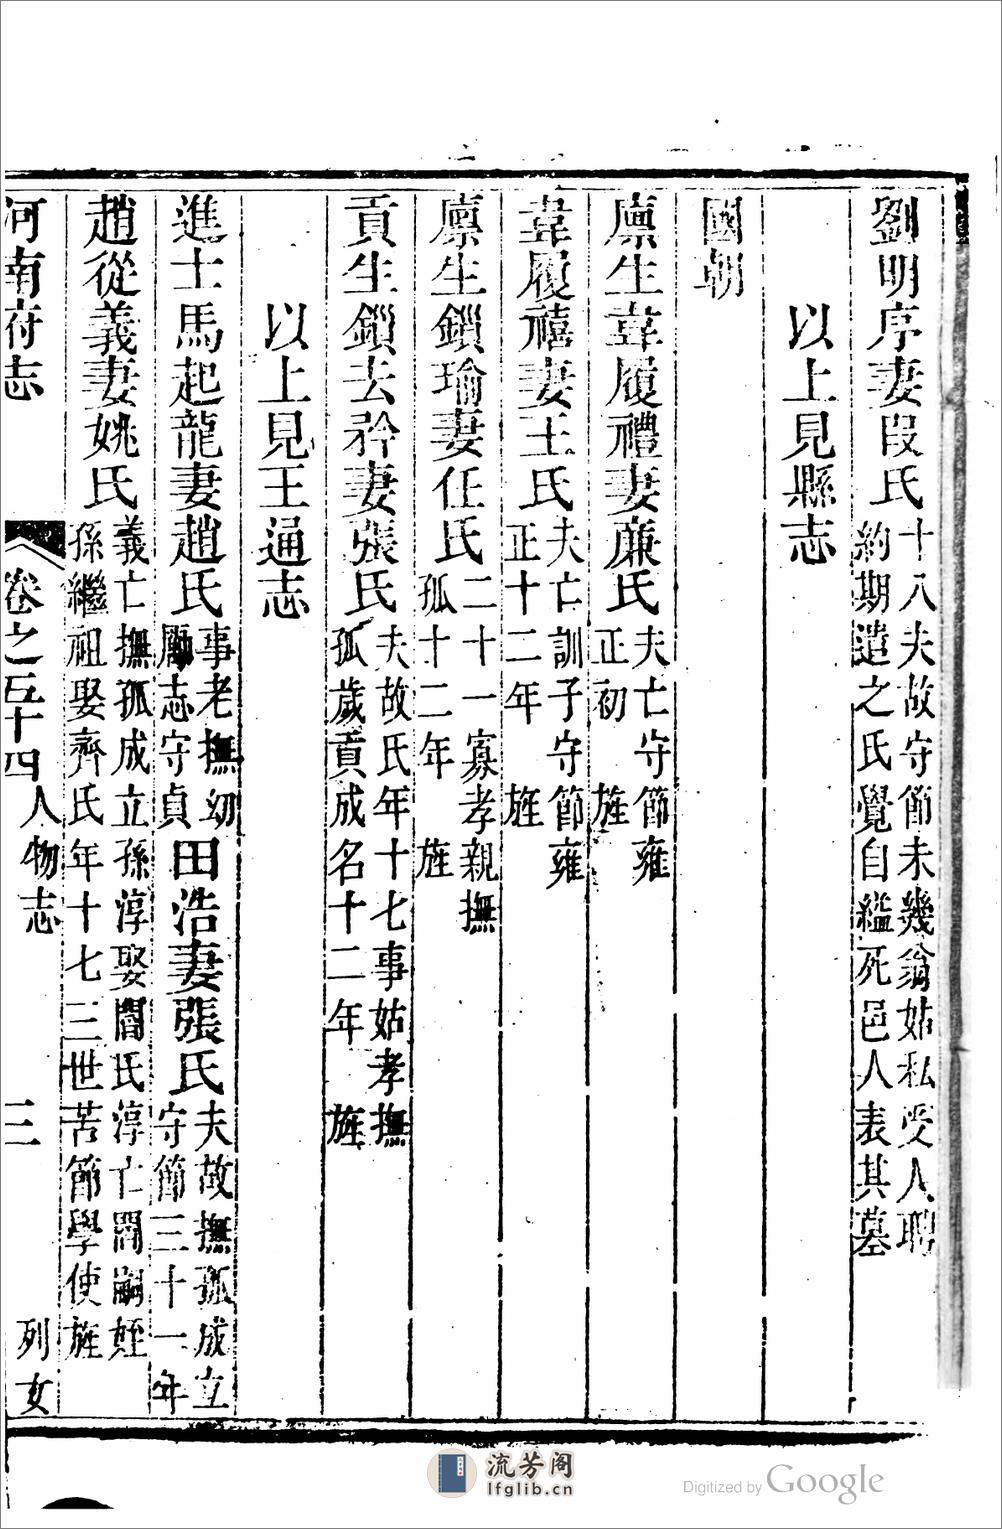 劉明序妻段氏 十八夫故守節未幾翁姑私受人聘約期造之氏覺自縊死邑人表其墓
以上見縣志
國朝
廩生韋履禮妻廉氏 夫亡守節雍正初 旌
韋履禧妻王氏 夫亡訓子守節雍正十二年 旌
廩生鎖瑜妻任氏 二十一寡孝親撫孤十二年 旌
貢生鎖去矜妻張氏 夫故氏年十七事姑孝撫孤歲貢成名十二年 旌
以上見王通志
進士馬起龍妻趙氏 事老撫幼勵志守貞 田浩妻張氏 夫故撫孤成立守節三十一年
趙從義妻姚氏 義亡撫孤成立孫淳娶閻氏淳亡閻嗣姪孫繼祖娶齊氏年十七三世苦節學使旌
河南府志 卷之五十四 人物志 三 列女
流芳阁
lfglib.cn
Digitized by Google